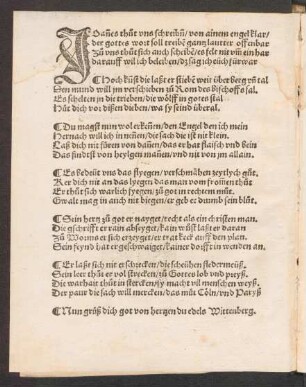 Johães thůt vns schreibē/ von ainem engel klar/
der gottes wort soll treibē gantz lautter offenbar
Zů vns thůt sich auch scheibē/ es felt nit vm ain har
darauff wil ich beleiben/ dz sag ich eüch fürwar
¶ Noch künst die laßt er stiebē weit über berg vñ tal
Den mund will jm verschieben zů Rom des bischoffs sal.
Es schelten jn die trieben/ die wölff im gottes stal
Hüt dich vor dißen dieben/ wa sy seind überal.
¶ Du magst nun wol erkēnen/ den Engel den ich mein
Hernach will ich in nēnen/ die sach die ist nit klein.
Laß dich nit fören von dañen/ das er hat flaisch vnd bein
Das findst von heyligen mañen/ vnd nit von jm allain.
¶ Es bedeüt vns das fliegen/ verschmähen zeytlich gůt.
Ker dich nit an das lyegen das man vom frommen thůt
Er thůt sich warlich fyegen/ zů got in rechtem můt.
Gwalt mag in auch nit biegen/ er geb ee darumb sein blůt.
¶ Sein herg zů got er nayget/ recht als ein christen man.
Die gschrifft er rain abseyget/ kain wůst laßt er daran
Zů Wormß er sich erzayget/ er trat keck auff den plan.
Sein feynd hat er geschwaiget/ kainer dorfft in wenden an.
¶ Er laßt sich nit erschrecken/ die scheühen fledermeüß.
Sein leer thůt er vol strecken/ zů Gottes lob vnd preyß.
Die warhait thůt in stercken/ sy macht vil menschen weyß.
Der paur die sach will mercken/ das müt Cöln/ vnd Paryß
¶ Nun grüß dich got von hertzen du edels Wittenberg.